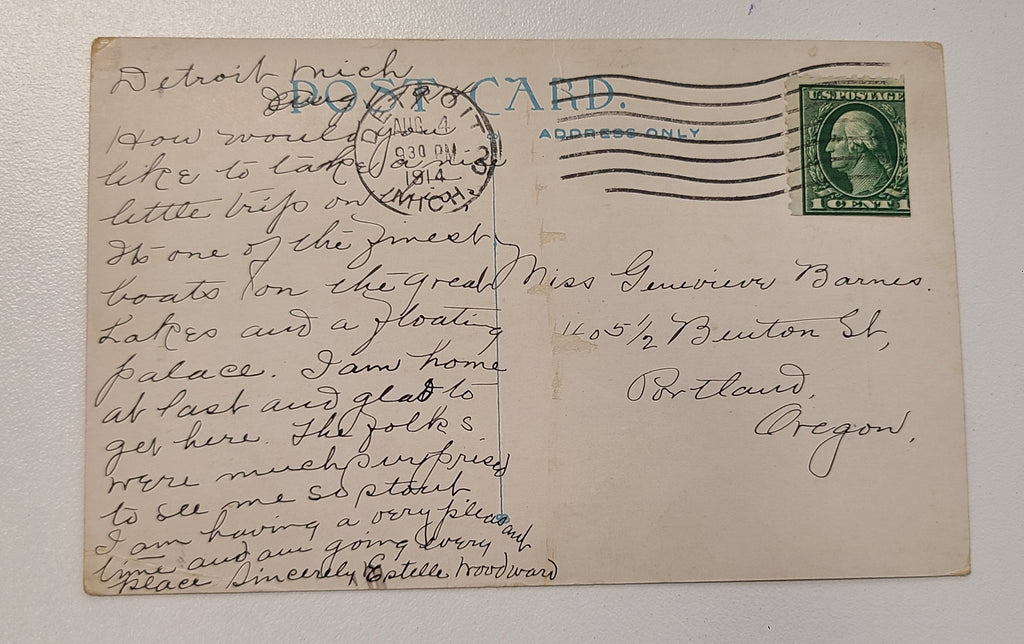 Detroit Mich
Aug
How would you
like to take a nice
little trip on
Its one of the finest
boats on the great
Lakes and a floating
palace. I am home
at last and glad to
get here. The folks
were much surprised
to see me so stout
I am having a very pleasant
time and am going every
place Sincerely Estelle Woodward
POST CARD.
ADDRESS ONLY
DETROIT
AUG. 4
930 PM
1914
MICH.
U.S. POSTAGE
1 CENT 1
Miss Genevieve Barnes.
1105 1/2 Benton St,
Portland,
Oregon.